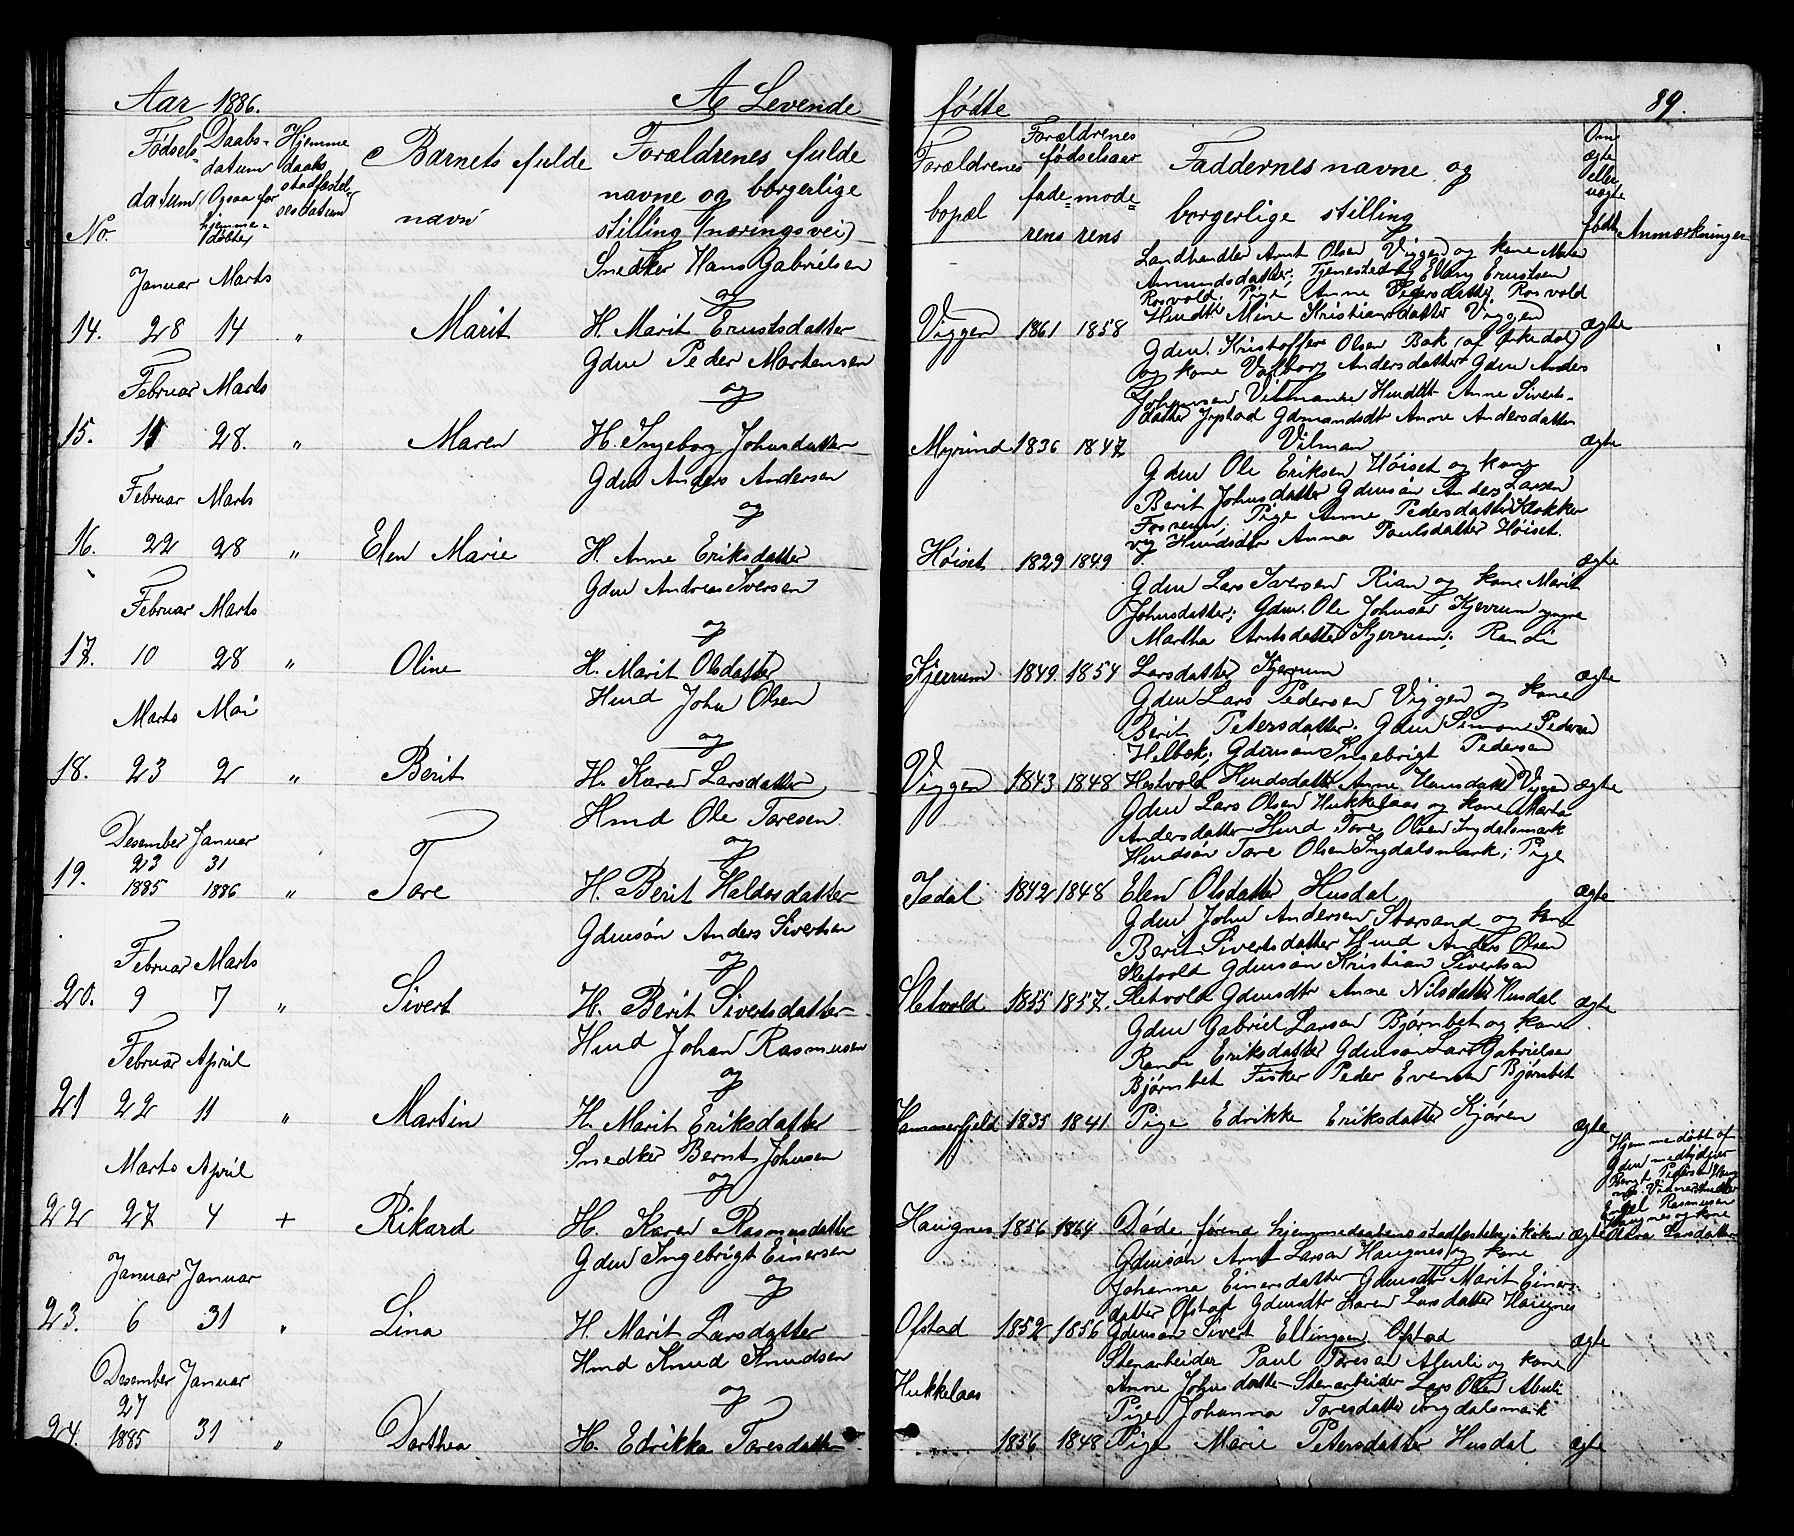 Aar 1886.
A Levende
fødte
89.
No.
Fødsels-
datum
Daabs-
datum
Ogsaa for
hjemme-
døbte
Hjemme
daabs
stadfæstel-
sesdatum
Barnets fulde
navn
Forældrenes fulde
navne og borgerlige
stilling (næringsvei)
Forældrenes
bopæl
Forældrenes
fødselsaar
fade= mode=
rens rens
Faddernes navne og
borgerlige stilling
Om
ægte
eller
uægte
født
Anmærkninger
Januar Marts
14. 28 14 „ Marit
Snedker Hans Gabrielsen
og
H. Marit Ernstsdatter
Viggen 1861 1858
Landhandler Arnt Olsen Viggen og kone
Amundsdatter; Elling Ernstsen
Rosvold; Pige Anne Pedersdatter Rosvold
Hmdtr Mine Kristiansdatter Viggen
ægte
Februar Marts
15. 11 28. „ Maren
Gdm Peder Martensen
og
H. Ingeborg Johnsdatter
Myrind 1836 1847
Gdm. Kristoffer Olsen Bak (af Orkedal)
og kone Valborg Andersdatter Gdm Anders
Johnsen Vilmand Hmdtr Anne Siverts-
datter Gdmandsdt Anne Andersdatter
Vilman
ægte
Februar Marts
16. 22 28 „ Elen Marie
Gdm Anders Andersen
og
H. Anne Eriksdatter
Høiset 1829 1849
Gdm Ole Eriksen Høiset og kone
Berit Johnsdatter Gdmsøn Anders Larsen
Pige Anne Pedersdatter Klokker
vig Hmdsdtr Anna Paulsdatter Høiset.
ægte
Februar Marts
17. 10 28 „ Oline
Gdm Andreas Iversen
og
H. Marit Olsdatter
Kjerrum 1849 1854
Gdm Lars Iversen Rian og kone Marit
Johnsdatter; Gdm. Ole Johnsen Kjerrum yngre
Martha Arntsdatter Kjerrum; Randi
Larsdatter Kjerrum
ægte
Marts Mai
18. 23 2 „ Berit
Hmd John Olsen
og
H. Karen Larsdatter
Viggen 1843 1848
Gdm Lars Pedersen Viggen og kone
Berit Petersdatter. Gdm Simon Pedersen
Helbek; Gdmsøn Ingebrigt Pedersen
Hestvold Hmdsdatter Anne Hansdatter Viggen
ægte
Desember Januar
23 31
19. 1885 1886 „ Tore
Hmd Ole Toresen
og
H. Berit Haldosdatter
Jødal 1842 1848
Gdm Lars Olsen Hukkelaas og kone Marta
Andersdatter Hmd Tore Olsen Ingdalsmark
Hmdsøn Tore Olsen Ingdalsmark; Pige
Elen Olsdatter Husdal
ægte
Februar Marts
20. 9 7 „ Sivert
Gdmsøn Anders Sivertsen
og
H. Berit Sivertsdatter
Sletvold 1855 1857.
Gdm John Andersen Storsand og kone
Berit Sivertsdatter Hmd Anders Olsen
Sletvold Gdmsøn Kristian Sivertsen
Sletvold Gdmsdtr Anne Nilsdatter Husdal
ægte
Februar April
21 22 11 „ Martin
Hmd Johan Rasmusen
og
H. Marit Eriksdatter
Hammerfjeld 1835 1841
Gdm Gabriel Larsen Bjørnbet og kone
Randi Eriksdatter Gdmsøn Lars Gabrielsen
Bjørnbet Fisker Peder Evensen Bjørnbet
Pige Edrikke Eriksdatter Kjøren
ægte
Marts April
22 27 4 + Rikard
Snedker Bernt Johnsen
og
H. Karen Rasmusdatter
Haugnes 1856 1864
Døde førend hjemmedaabens stadfæstelse i kirken
ægte
Hjemmedøbt af
Gdm medhjelper
Bengt Pedersen
Rasmusen
Haugnes og kone
Larsdatter
Januar Januar
23. 6 31 „ Lina
Gdm Ingebrigt Einersen
og
H. Marit Larsdatter
Ofstad 1852 1856
Gdmsøn Arnt Larsen Haugnes og kone
Johanna Einersdatter Gdmsdtr Marit Einers-
datter Ofstad Gdmsdtr Karen Larsdatter Haugnes
Gdmsøn Sivert Ellingsen Ofstad
ægte
Desember Januar
27
24. 1885 31 „ Dorthea
Hmd Knud Knudsen
og
H. Edrikka Toresdatter
Hukkelaas
1856 1848
Stenarbeider Paul Toresen Almli og kone
Anne Johnsdatter Stenarbeider Lars Olsen Almli
Pige Johanna Toresdatter Ingdalsmark
Pige Marie Petersdatter Husdal
ægte